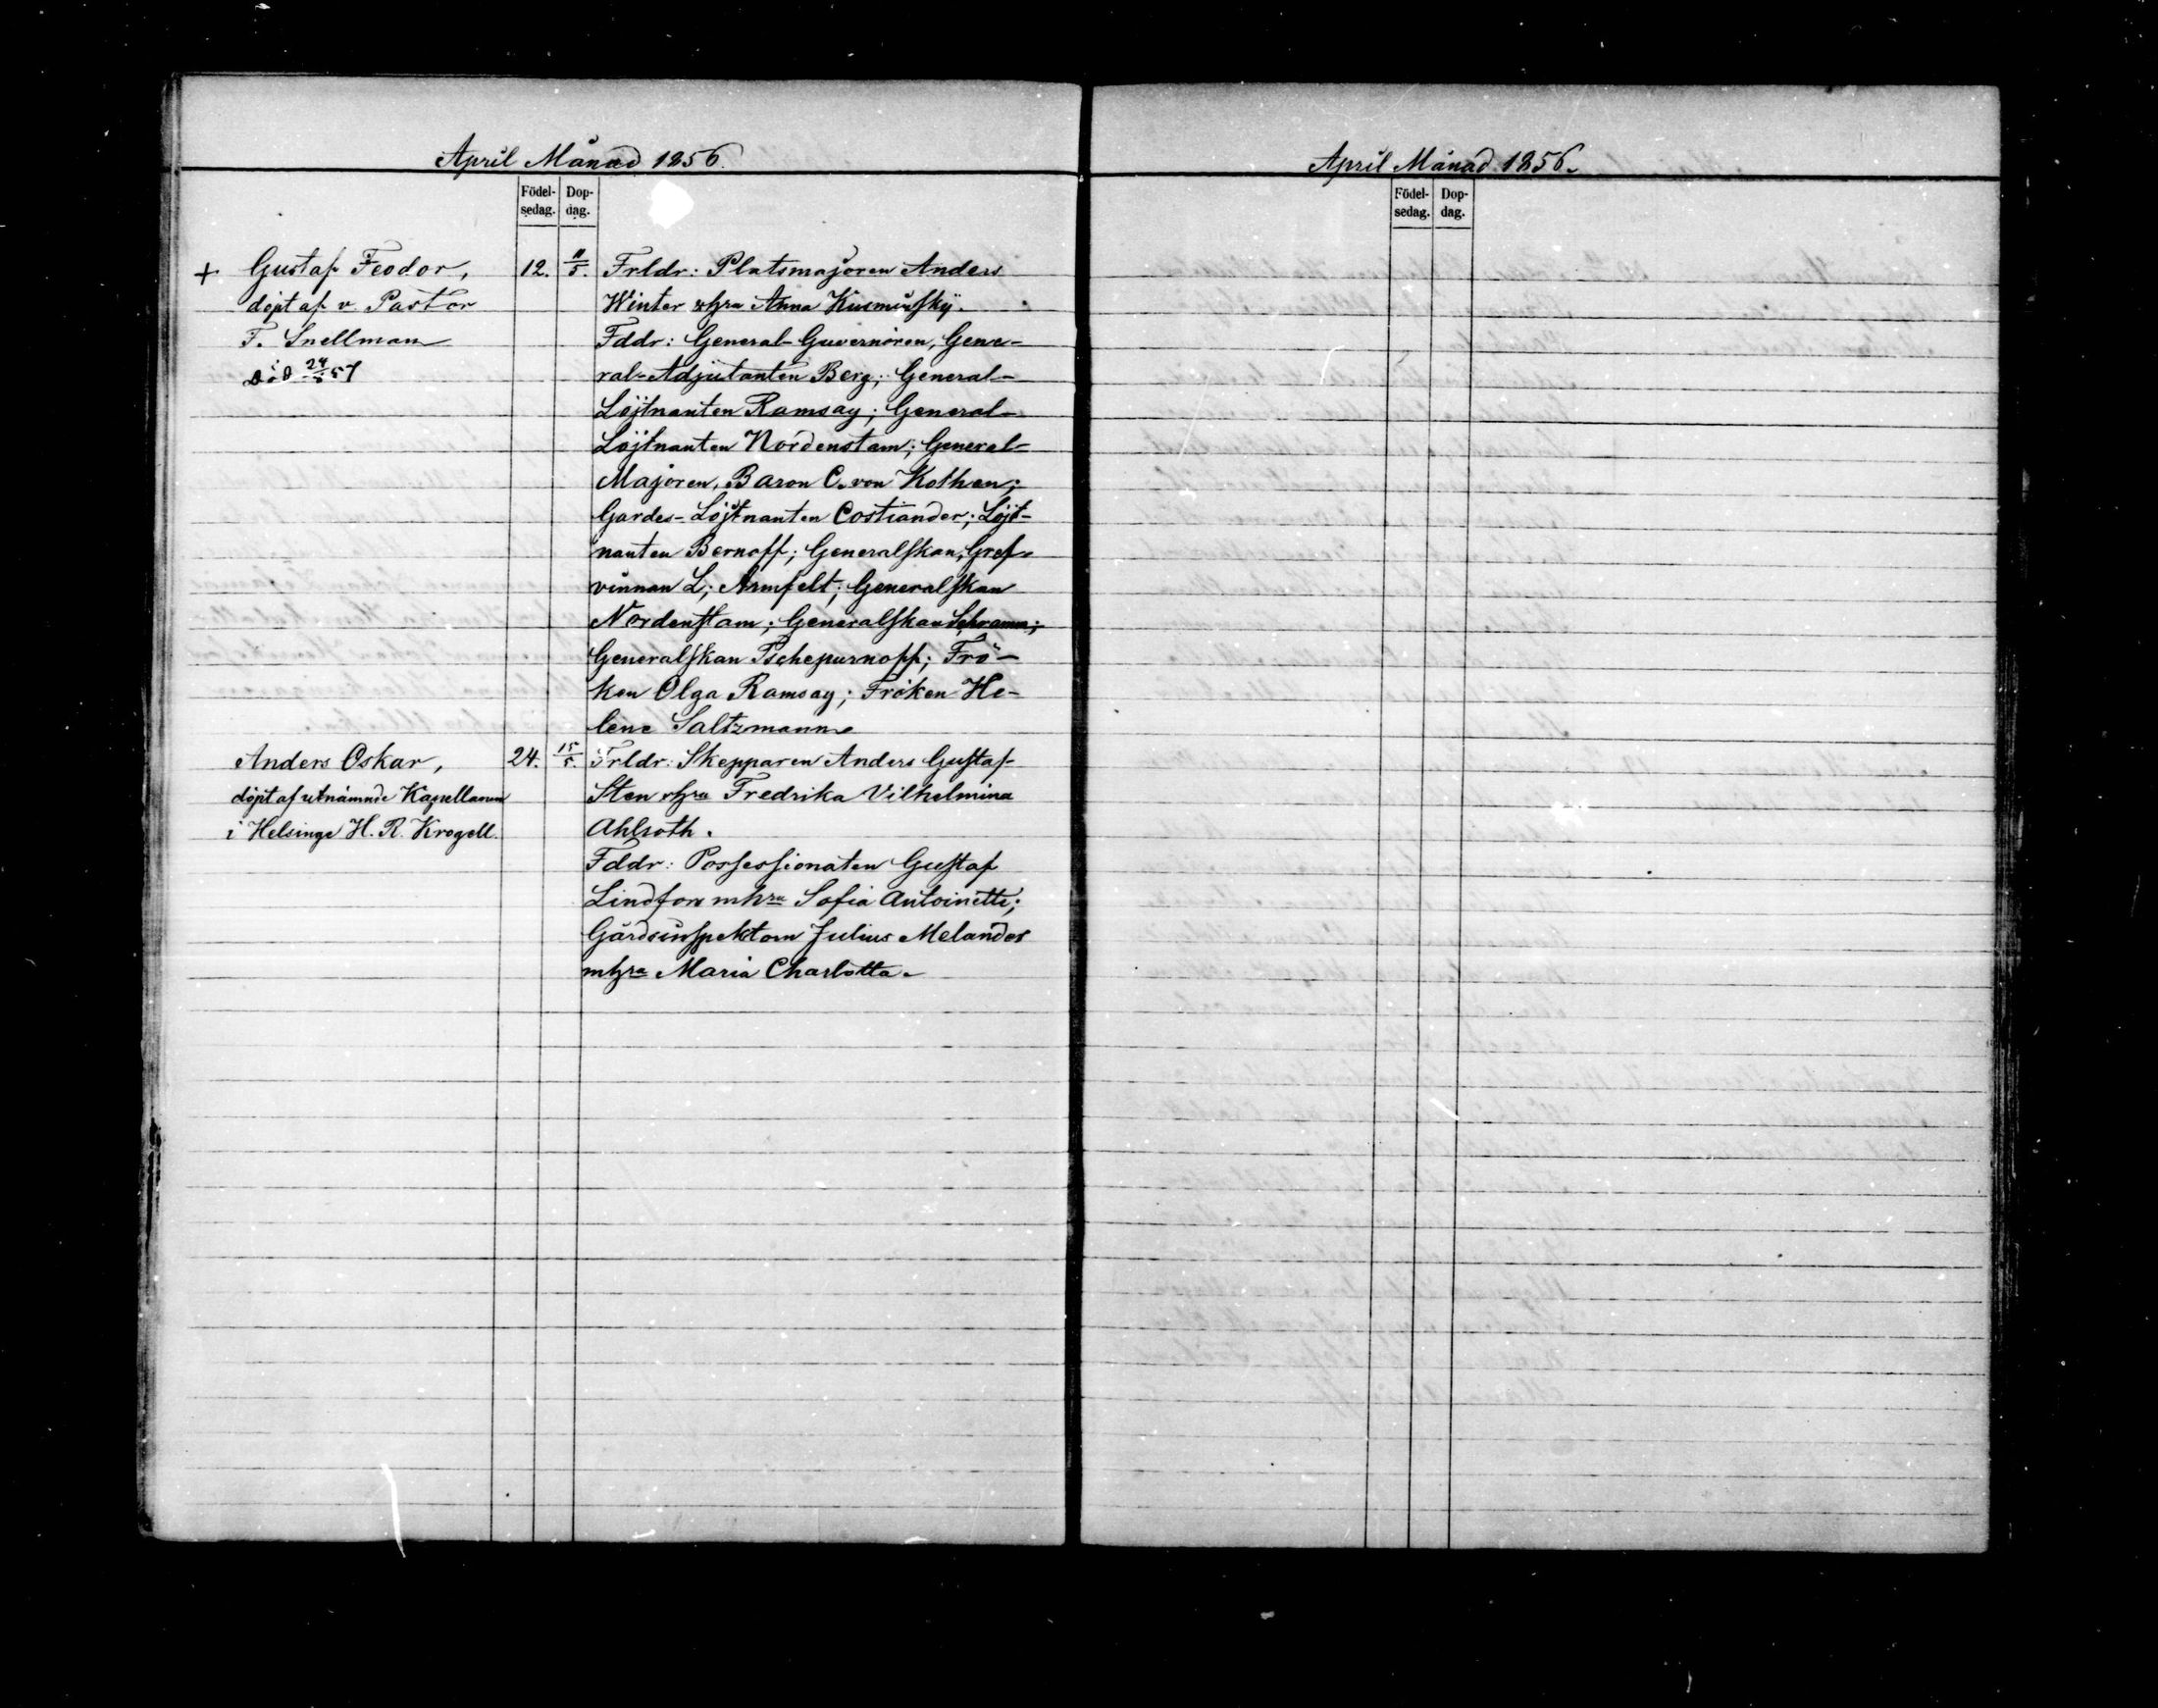 April Månad 1856.
Födel-
sedag.
Dop-
dag.
+ Gustaf Feodor,
döpt af v. Pastor
F. Snellman
död 24/5 57
12. 11/5.
Frldr: Platsmajoren Anders
Winter o hra Anna
Fddr: General-Guvernören, Gene-
ral-Adjutanten Berg; General-
Löjtnanten Ramsay; General-
Löjtnanten Nordenstam; General-
Majoren, Baron C. von Kothen;
Gardes-Löjtnanten Costiander; Löjt-
nanten Bernoff; Generalskan, Gref-
vinnan L; Armfelt; Generalskan
Nordenstam; Generalskan Schramm;
Generalskan Tschepurnoff; Frö-
ken Olga Ramsay; Fröken He-
lene Saltzmann.
Anders Oskar,
döpt af utnämnde Kapellanen
i Helsinge H. R. Krogell.
24. 15/5.
Frldr: Skepparen Anders Gustaf
Sten o hra Fredrika Vilhelmina
Ahlroth.
Fddr: Possessionaten Gustaf
Lindfors m hra Sofia Antoinette;
Gårdsinspektorn Julius Melander
m hra Maria Charlotta.
April Månad 1856.
Födel-
sedag.
Dop-
dag.